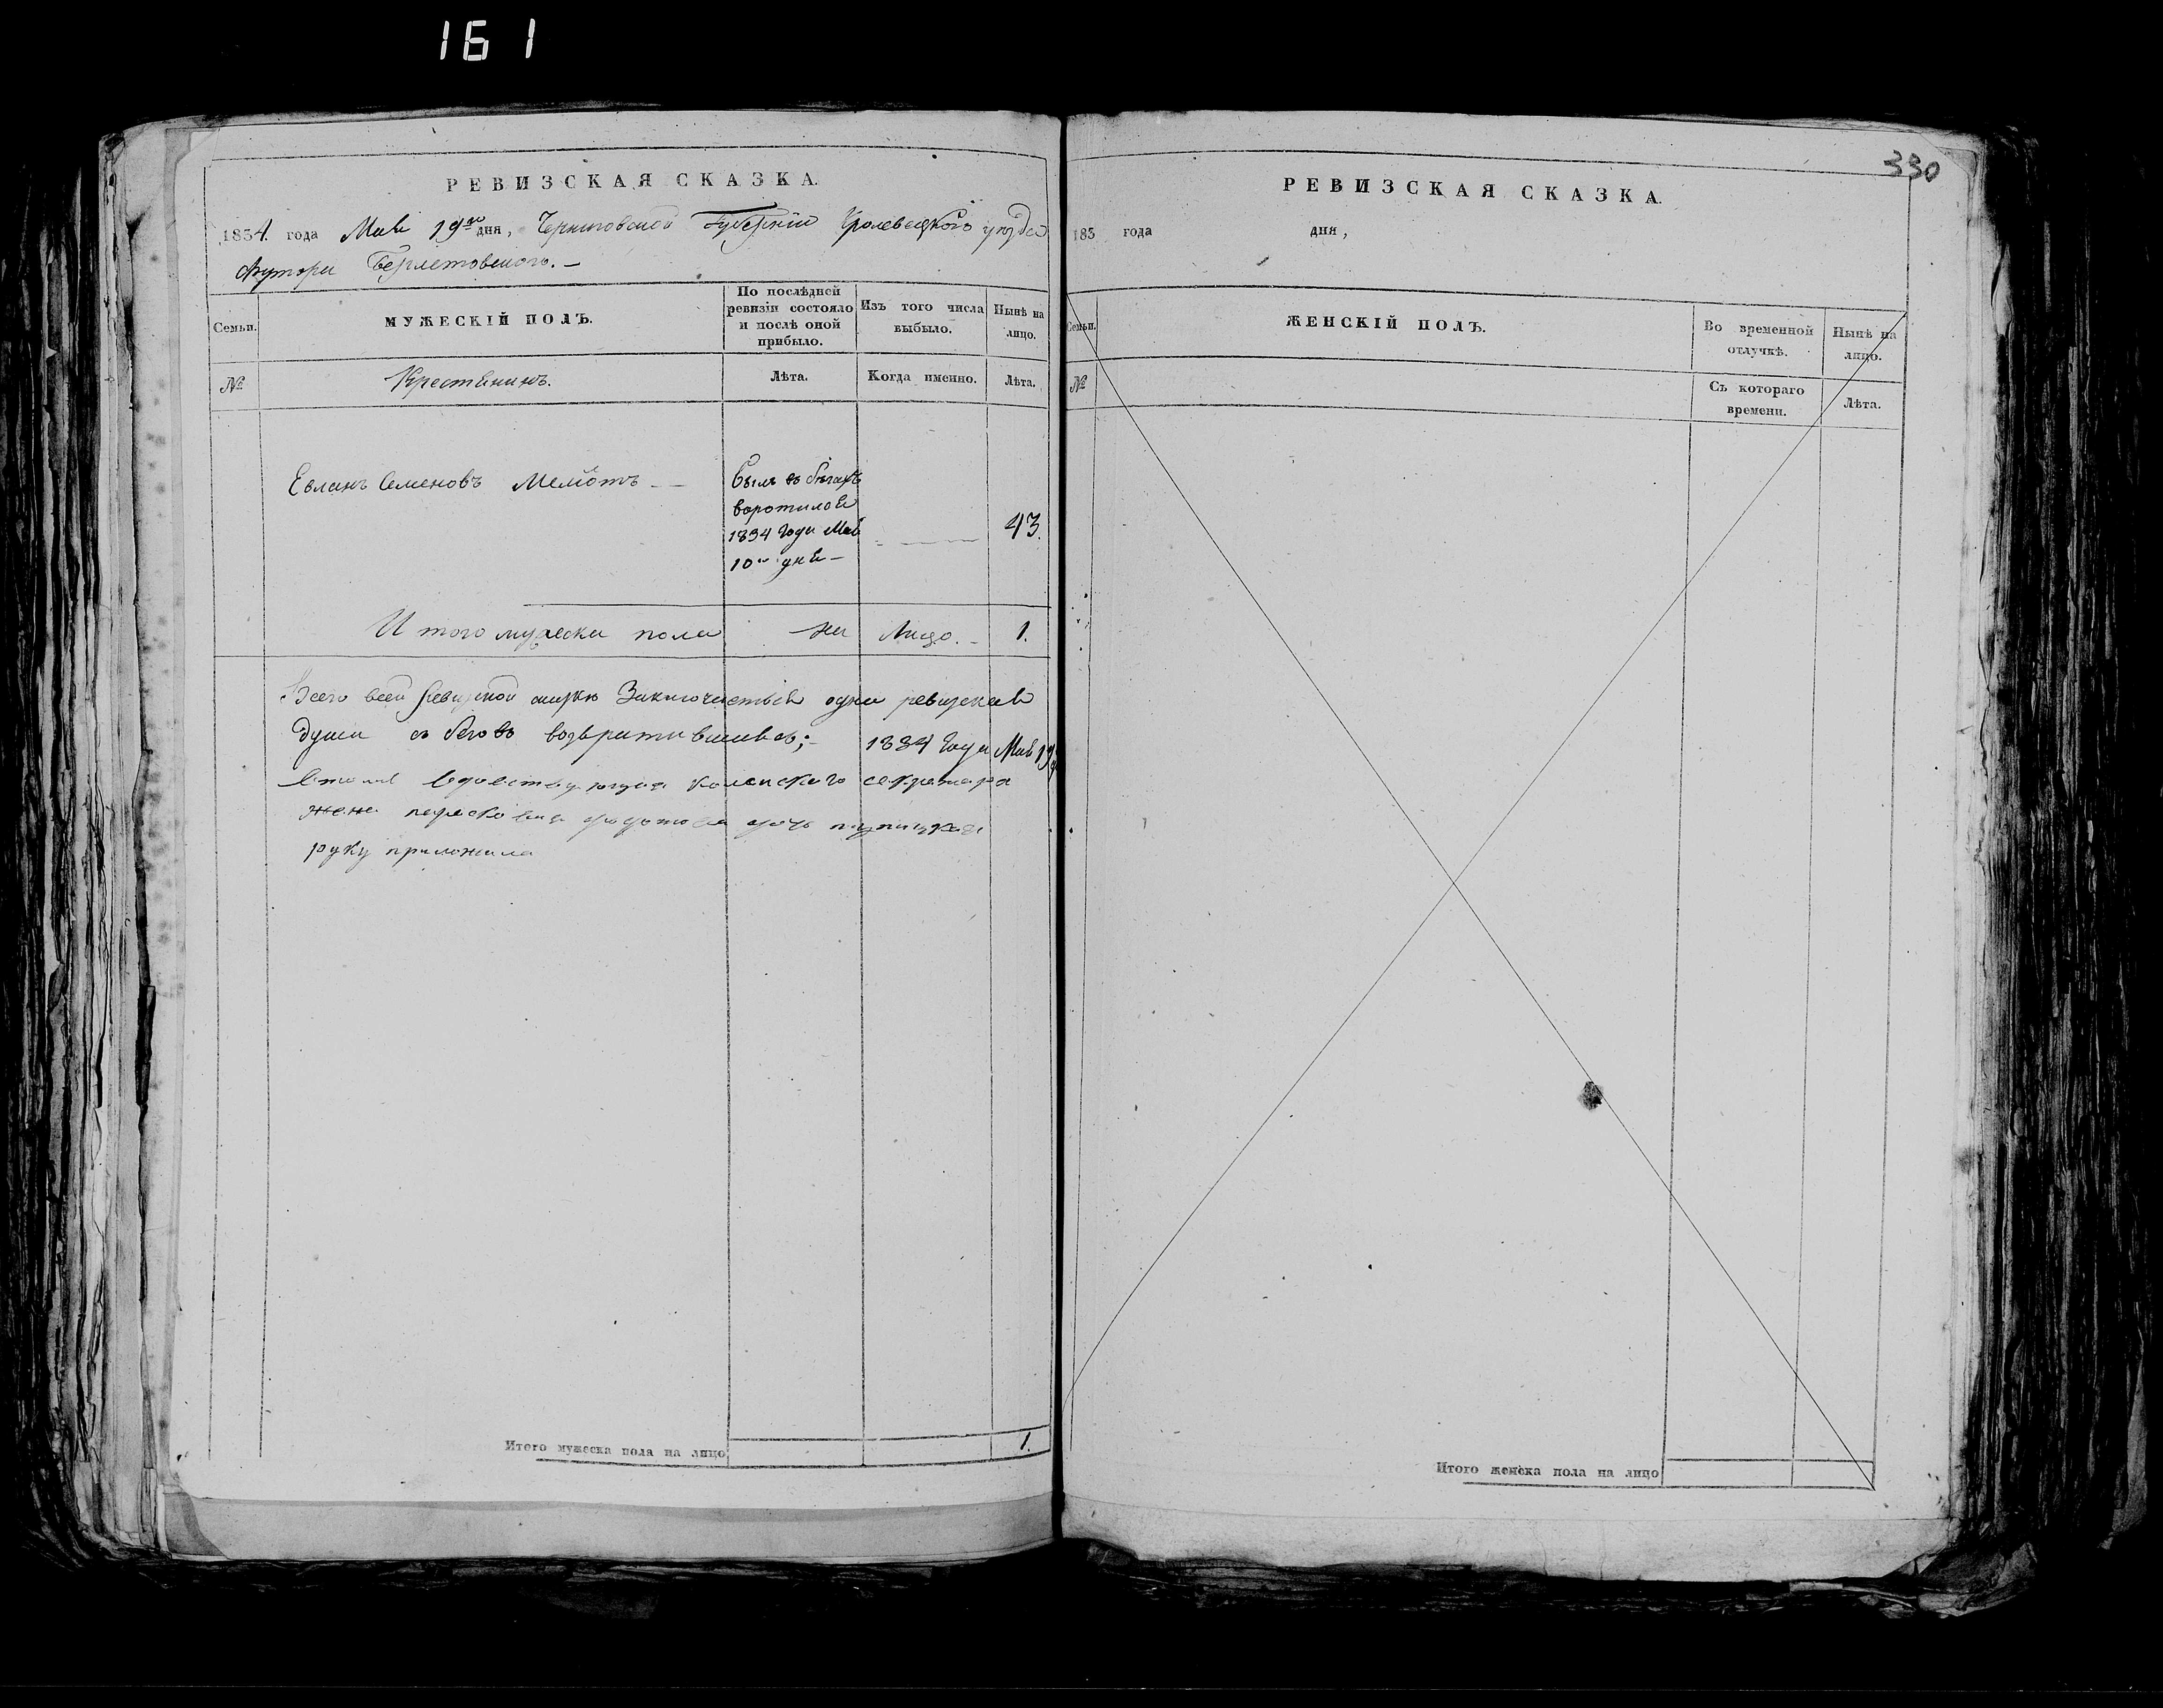 161
330
РЕВИЗСКАЯ СКАЗКА.
1854. года Маія 19го дня, Черниговской Губерніи Кролевецкого уезда
Хутора
МУЖЕСКІЙ ПОЛЪ.
Семьи.
По послѣдней ревизіи состояло и послѣ оной прибыло.
Изъ того числа выбыло.
Нынѣ на лицо.
№
Крестьянинъ.
Лѣта.
Когда именно.
Лѣта.
Семеновъ
Былъ въ бегахъ
воротился
1854 года Маія
10го дня —
43.
Итого мужеска пола на Лицо. — 1.
Всего въ сей ревизской заключается одна ревизская
душа съ бегов возвратившаяся; — 1854 Года Маія 19
коллежского секретаря
жена дочь
руку приложила
Итого мужеска пола на лицо
1.
РЕВИЗСКАЯ СКАЗКА.
185 года дня,
Семьи.
ЖЕНСКІЙ ПОЛЪ.
Во временной отлучкѣ.
Нынѣ на лицо.
№
Съ котораго времени.
Лѣта.
Итого женска пола на лицо